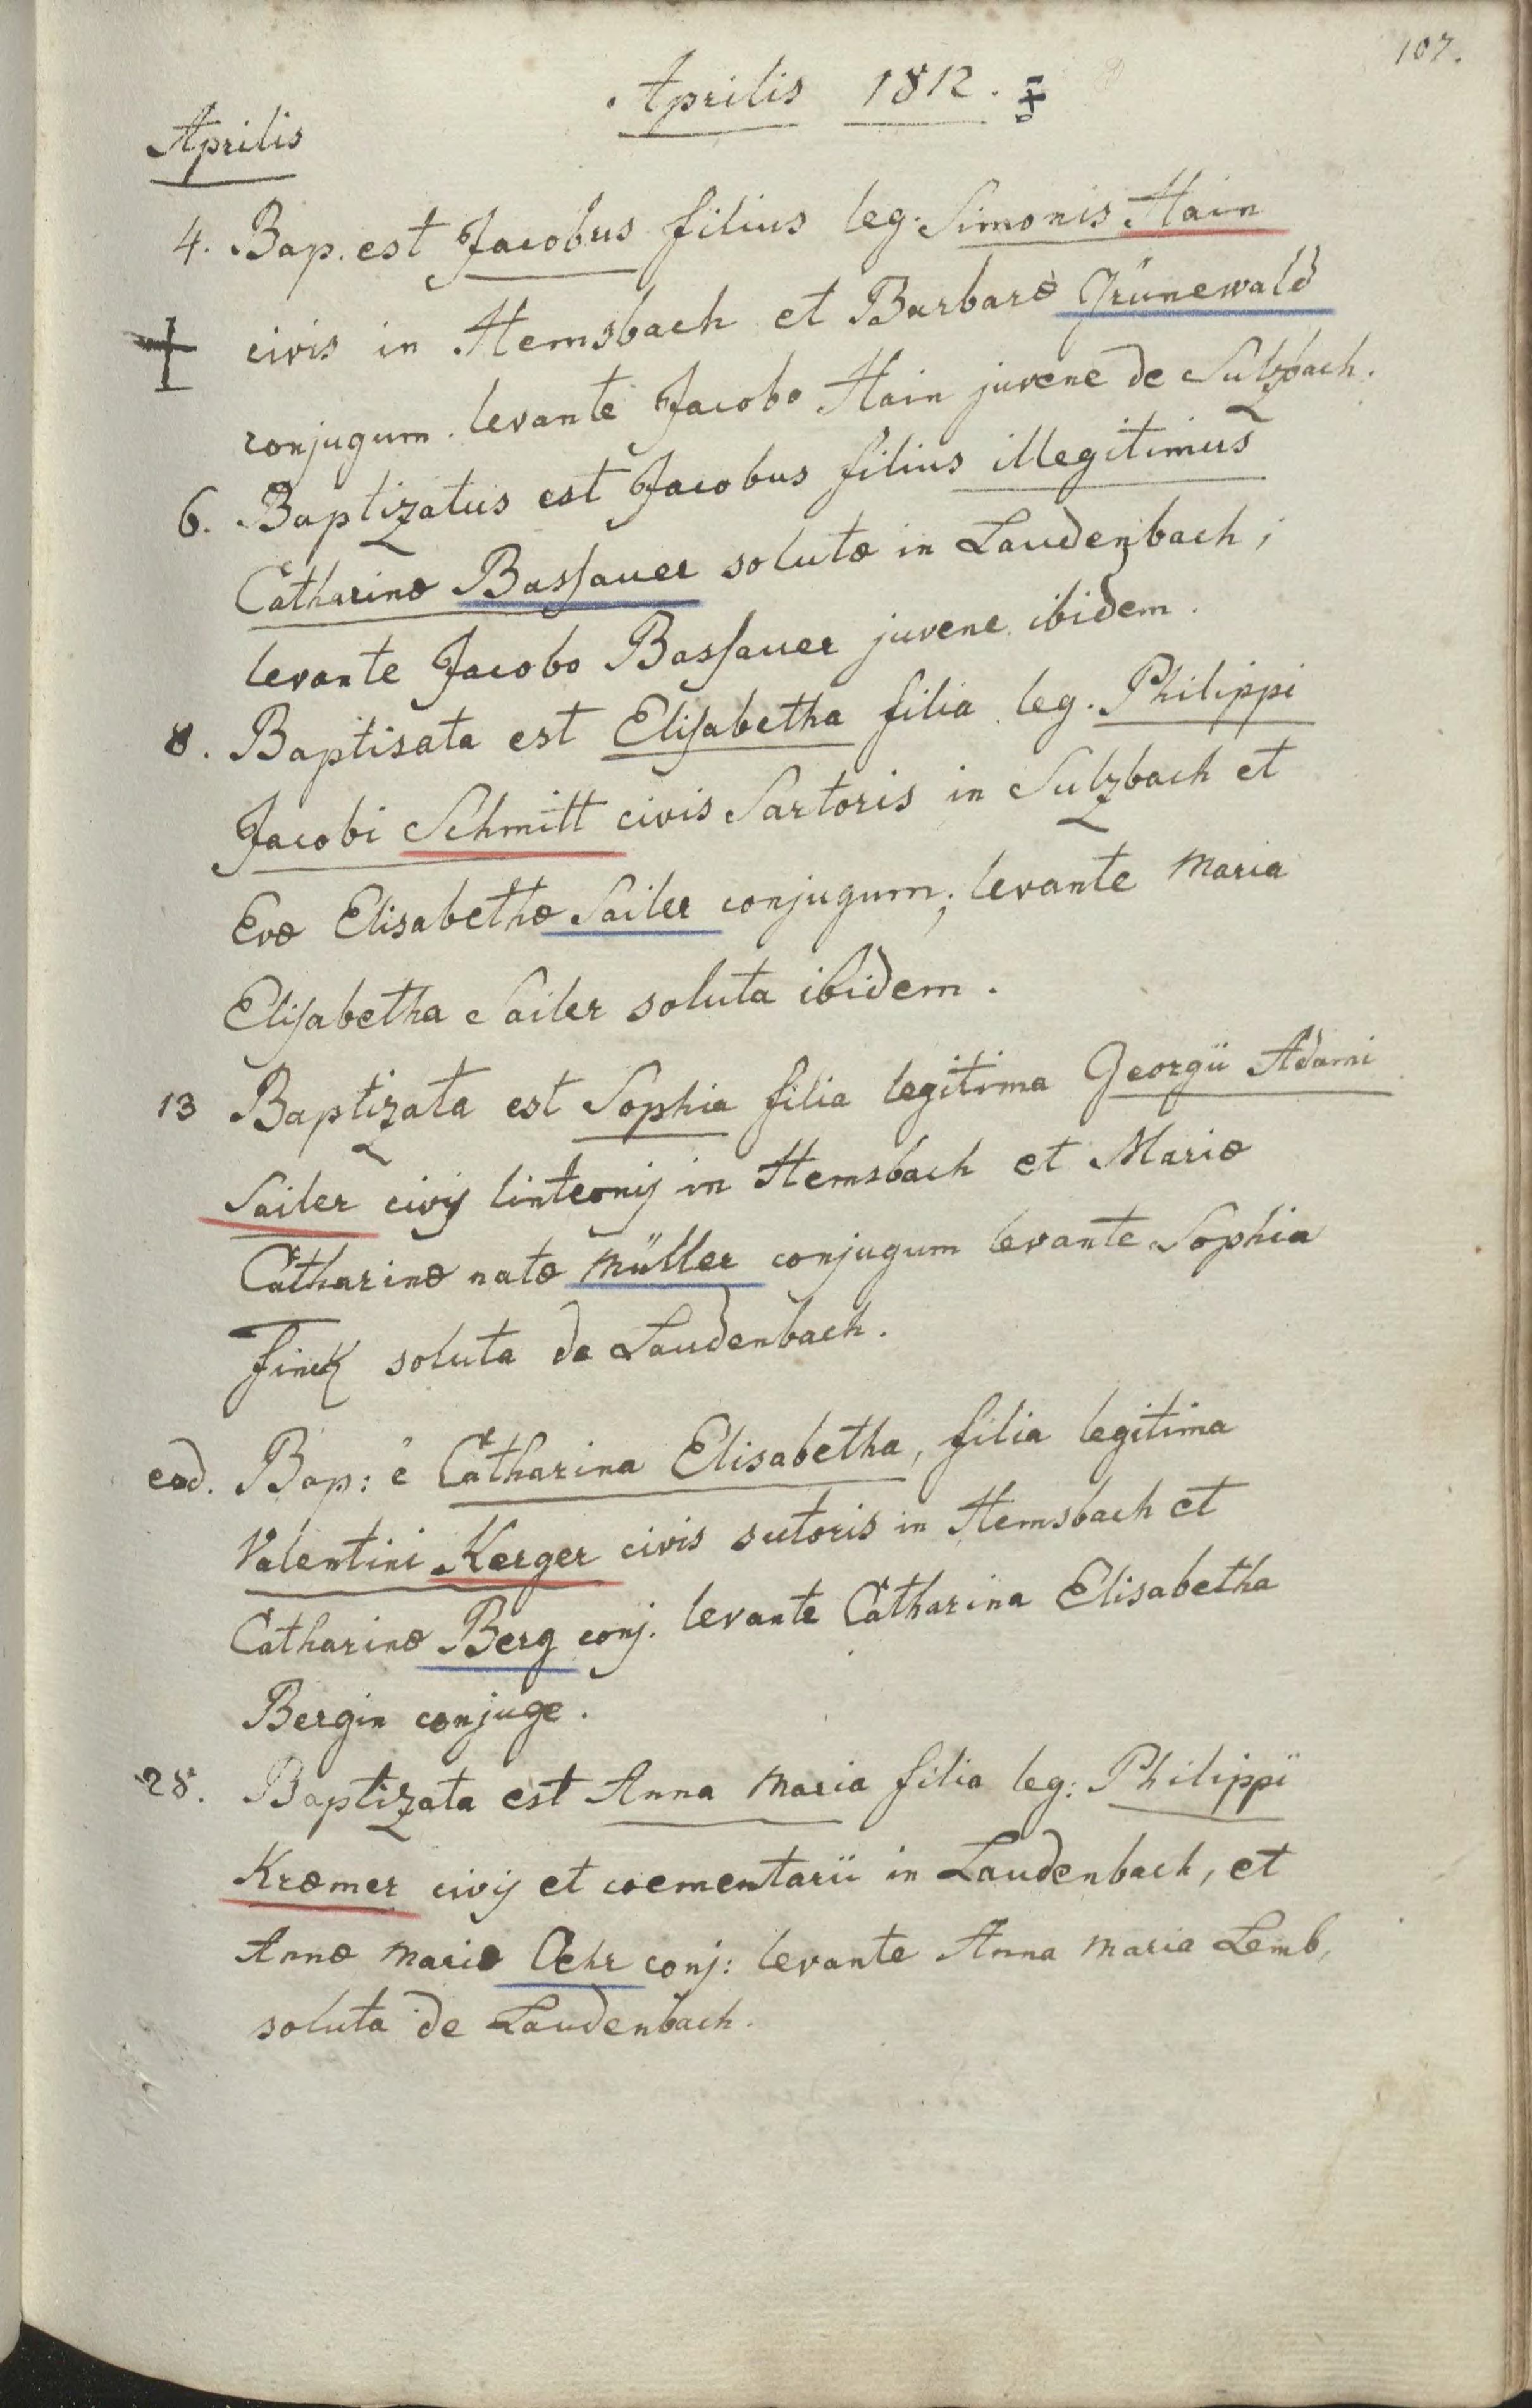 107.
Aprilis 1812.
Aprilis
4. Bap. est Jacobus filius leg. Simonis Hain
civis in Hemsbach et Barbaræ Grünewald
conjugum. levante Jacobo Hain juvene de Sulzbach.
6. Baptizatus est Jacobus filius illegitimus
Catharinæ Bassauer solutæ in Laudenbach;
levante Jacobo Bassauer juvene ibidem.
8. Baptisata est Elisabetha filia leg. Philippi
Jacobi Schmitt civis Sartoris in Sulzbach et
Evæ Elisabethæ Sailer conjugum; levante Maria
Elisabetha Sailer soluta ibidem.
13 Baptizata est Sophia filia legitima Georgii Adami
Sailer civis linteonis in Hemsbach et Mariæ
Catharinæ natæ Müller conjugum levante Sophia
Finck soluta de Laudenbach.
eod. Bap: ē Catharina Elisabetha, filia legitima
Valentini Kerger civis sutoris in Hemsbach et
Catharinæ Berg conj. levante Catharina Elisabetha
Bergin conjuge.
28. Baptizata est Anna Maria filia leg: Philippi
Kræmer civis et cœmentarii in Laudenbach, et
Annæ Mariæ Oehr conj: levante Anna Maria Lemb,
soluta de Laudenbach.